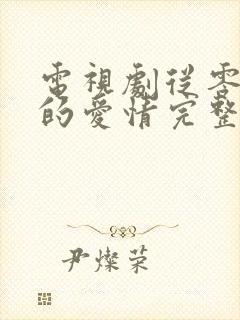 電視劇從零
的愛情完整
尹燦榮